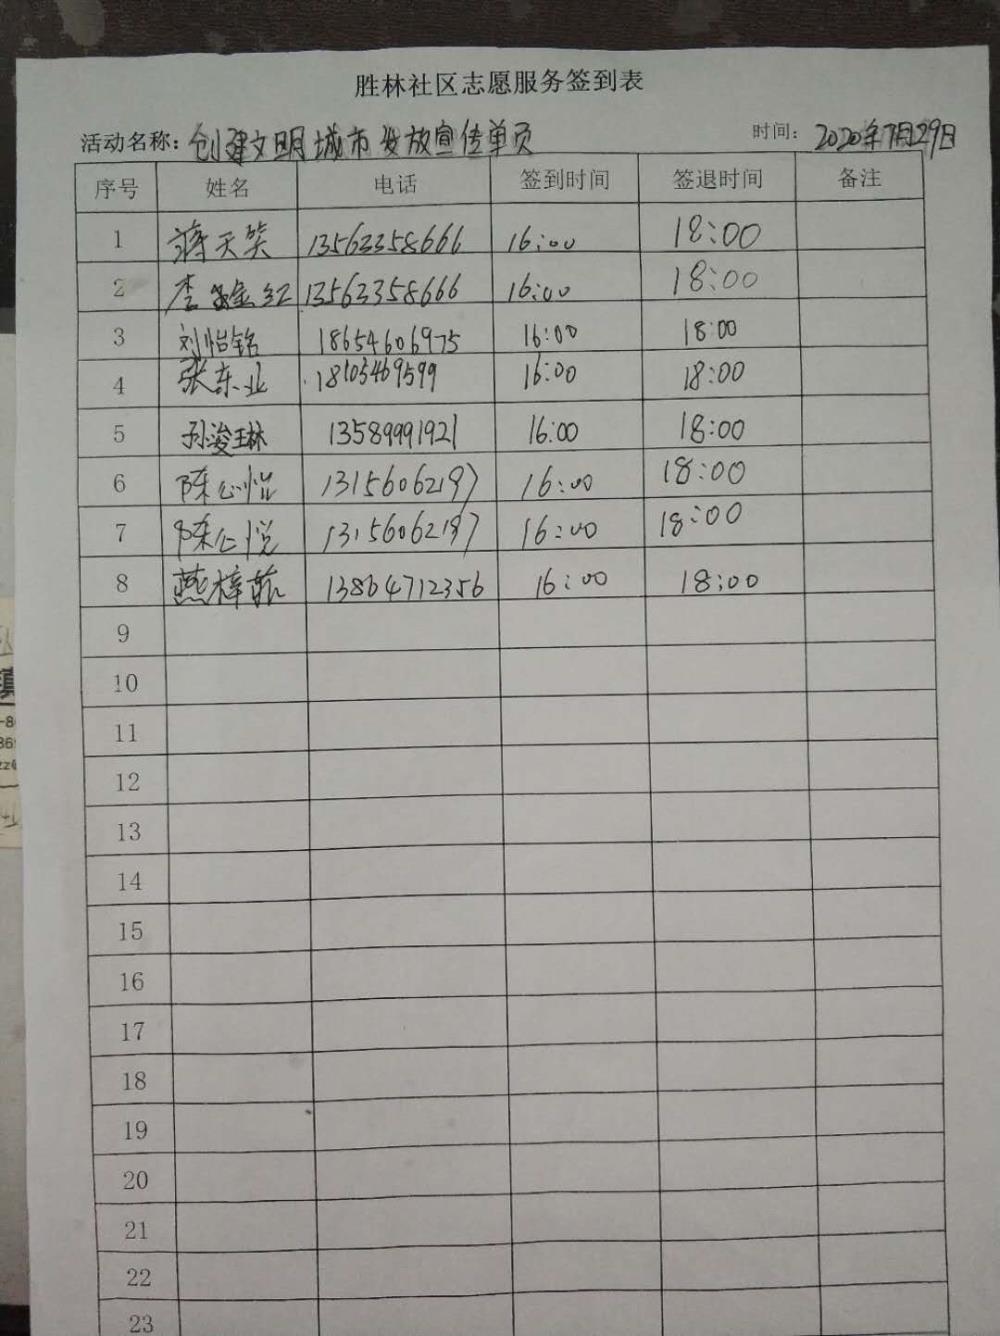 胜林社区志愿服务签到表
活动名称：创建文明城市发放宣传单页 时间：2020年7月29日
序号 姓名 电话 签到时间 签退时间 备注
1 蒋天笑 13563358666 16:00 18:00
2 李 红 13563358666 16:00 18:00
3 刘怡铭 18654606975 16:00 18:00
4 张东业 18103469599 16:00 18:00
5 孙浚琳 13589991921 16:00 18:00
6 陈心怡 13156062197 16:00 18:00
7 陈心悦 13156062197 16:00 18:00
8 燕梓菲 13864712356 16:00 18:00
9
10
11
12
13
14
15
16
17
18
19
20
21
22
23